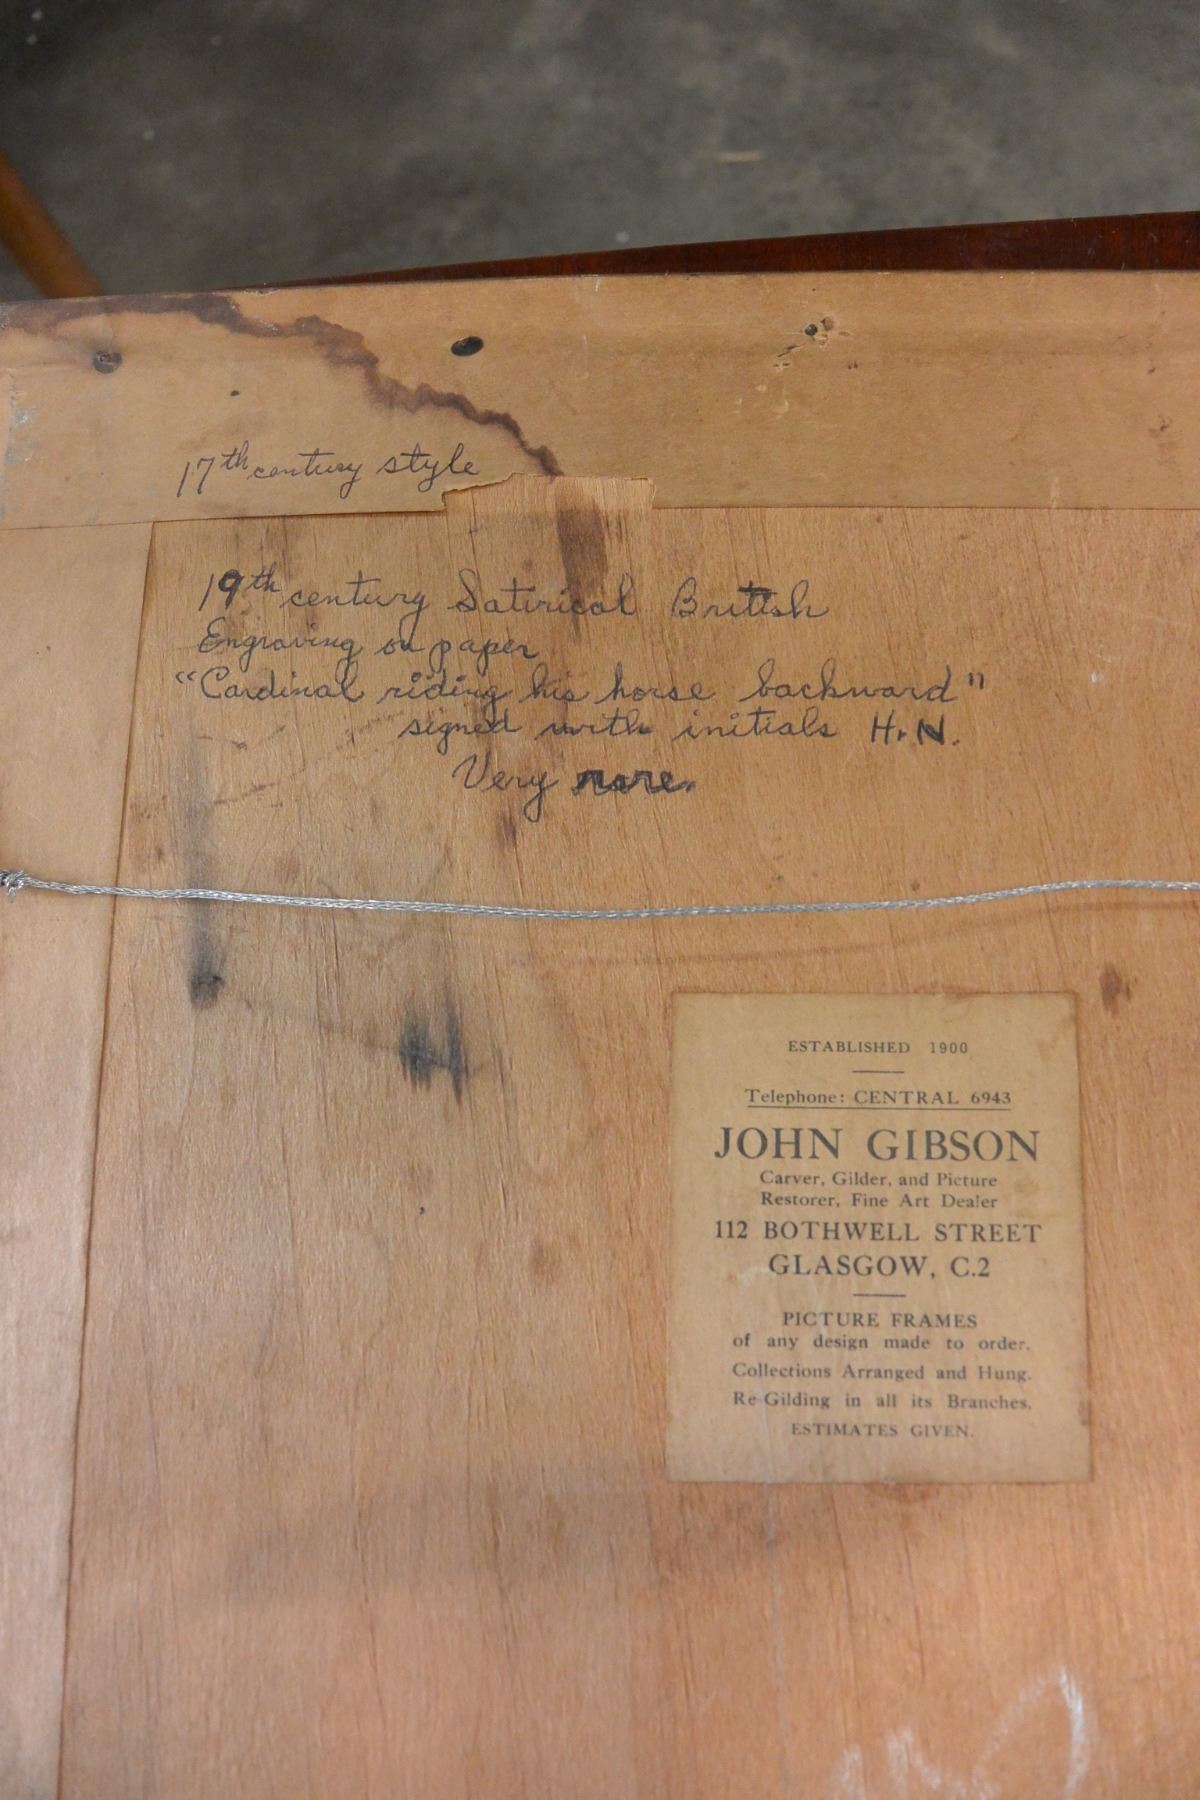 17th century style
19th century Satirical British
Engraving on paper
"Cardinal riding his horse backward"
signed with initials H.N.
Very rare.
ESTABLISHED 1900
Telephone: CENTRAL 6943
JOHN GIBSON
Carver, Gilder, and Picture
Restorer, Fine Art Dealer
112 BOTHWELL STREET
GLASGOW, C.2
PICTURE FRAMES
of any design made to order.
Collections Arranged and Hung.
Re-Gilding in all its Branches.
ESTIMATES GIVEN.